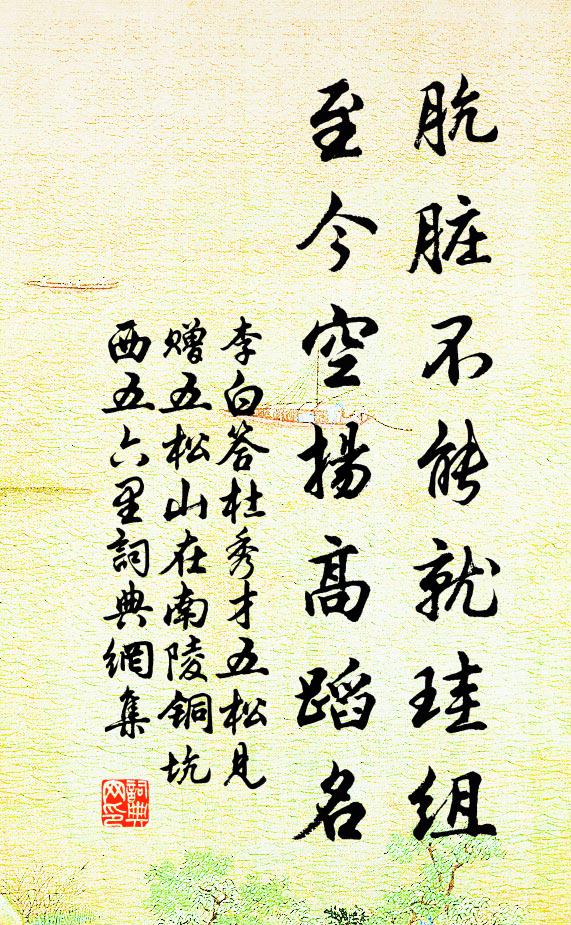 肮脏不能就珪组
至今空揚高蹈名
李白答杜秀才五松見
赠五松山在南陵铜坑
西五六里詞典網集
詞典
网印